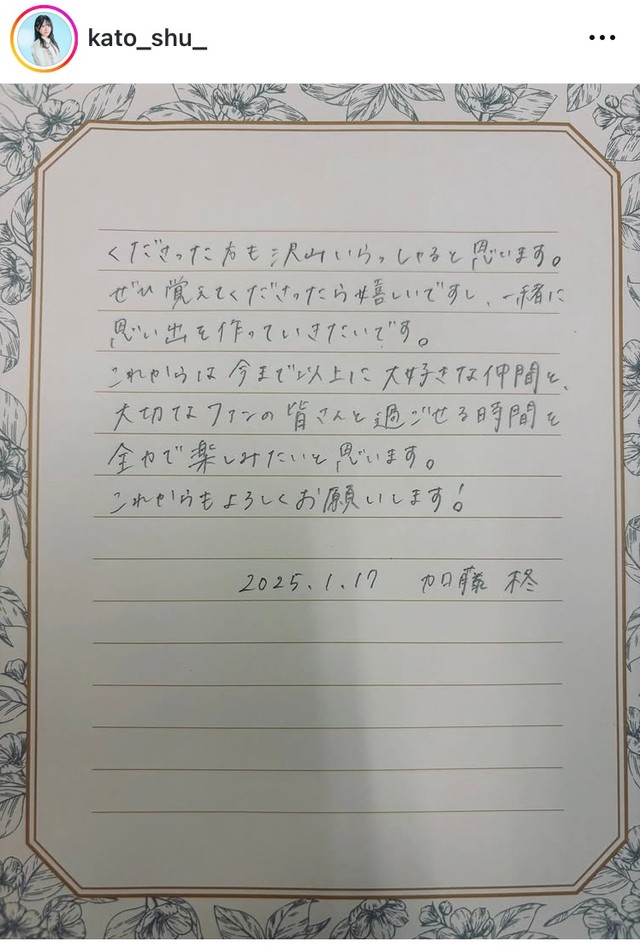 kato_shu_
くださった方も沢山いらっしゃると思います。
ぜひ覚えてくださったら嬉しいですし、一緒に
思い出を作っていきたいです。
これからは今まで以上に大好きな仲間と、
大切なファンの皆さんと過ごせる時間を
全力で楽しみたいと思います。
これからもよろしくお願いします!
2025.1.17 加藤 柊